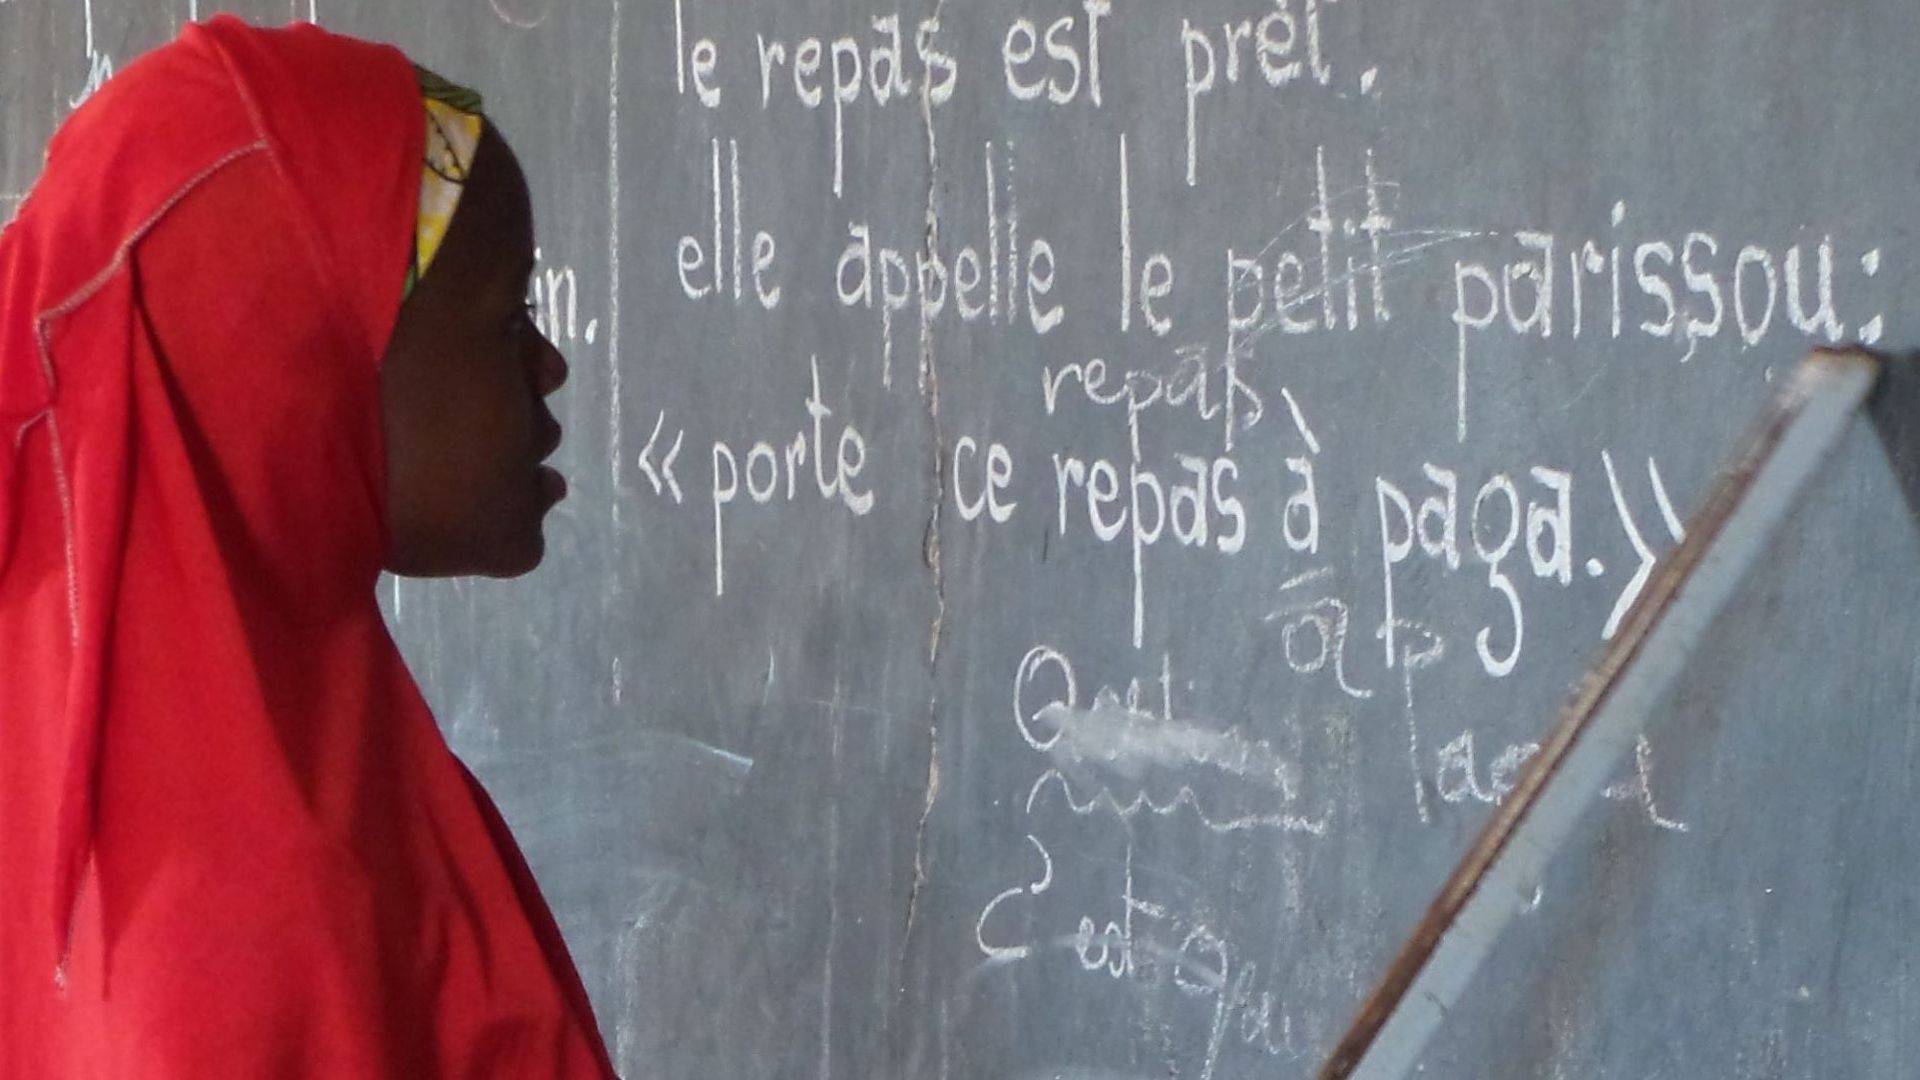 le repas est prêt.
in. elle appelle le petit parissou:
repas
« porte ce repas à paga.»
à p
C'est